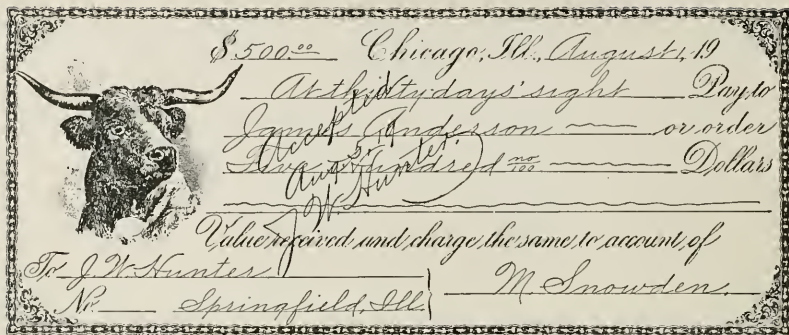 $500.00 Chicago, Ill., August 1, 19
At thirty days' sight Pay to
James Anderson or order
Five Hundred no/100 Dollars
Accepted
Aug. 5, 19
J. W. Hunter
Value received and charge the same to account of
To J. W. Hunter
No. Springfield, Ill.
M. Snowden.